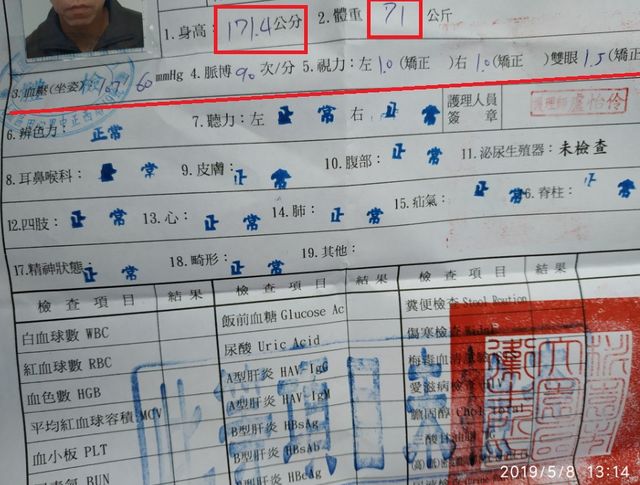 1.身高: 171.4公分 2.體重 71 公斤
3.血壓(坐姿) 107/60 mmHg 4.脈博 90 次/分 5.視力:左 1.0 (矯正 )右 1.0 (矯正 )雙眼 1.5 (矯正
6.辨色力: 正常 7.聽力:左 正常 右 正常 護理人員簽章 護理師盧怡伶
8.耳鼻喉科: 正常 9.皮膚: 正常 10.腹部: 正常 11.泌尿生殖器:未檢查
12.四肢: 正常 13.心: 正常 14.肺: 正常 15.疝氣: 正常 16.脊柱: 正常
17.精神狀態: 正常 18.畸形: 正常 19.其他:
檢查項目 結果 檢查項目 結果 檢查項目 結果
白血球數 WBC 飯前血糖 Glucose Ac 糞便檢查 Stool Roution
紅血球數 RBC 尿酸 Uric Acid 傷寒檢查
血色數 HGB A型肝炎 HAV-IgG 梅毒血清
平均紅血球容積 MCV A型肝炎 HAV-IgM 愛滋病檢查
血小板 PLT B型肝炎 HBsAg 膽固醇 Chol Total
BUN B型肝炎 HBsAb
B型肝炎 HBeAg
2019/5/8 13:14